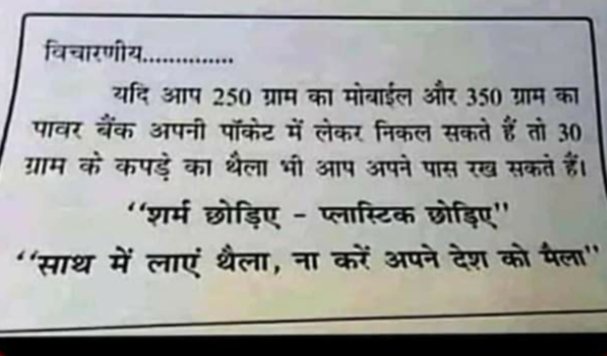 विचारणीय..............
यदि आप 250 ग्राम का मोबाईल और 350 ग्राम का
पावर बैंक अपनी पॉकेट में लेकर निकल सकते हैं तो 30
ग्राम के कपड़े का थैला भी आप अपने पास रख सकते हैं।
‘‘शर्म छोड़िए - प्लास्टिक छोड़िए’’
‘‘साथ में लाएं थैला, ना करें अपने देश को मैला’’